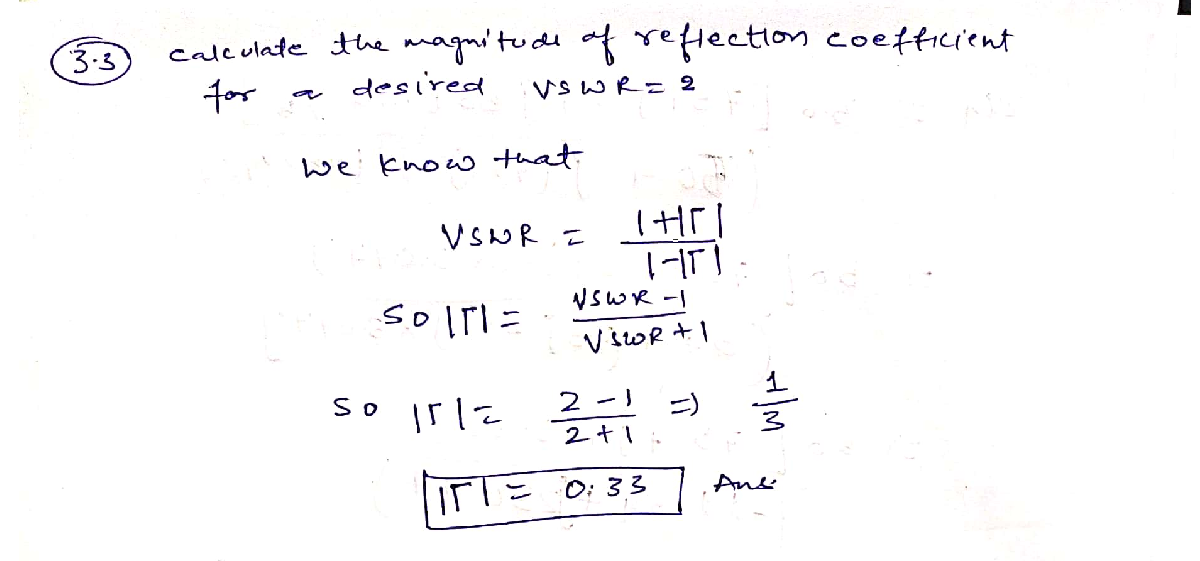 3.3 calculate the magnitude of reflection coefficient
for a desired VSWR = 2
we know that
VSWR = 1+|Γ| / 1-|Γ|
so |Γ| = VSWR-1 / VSWR+1
so |Γ| = 2-1 / 2+1 => 1/3
|Γ| = 0.33 Ans